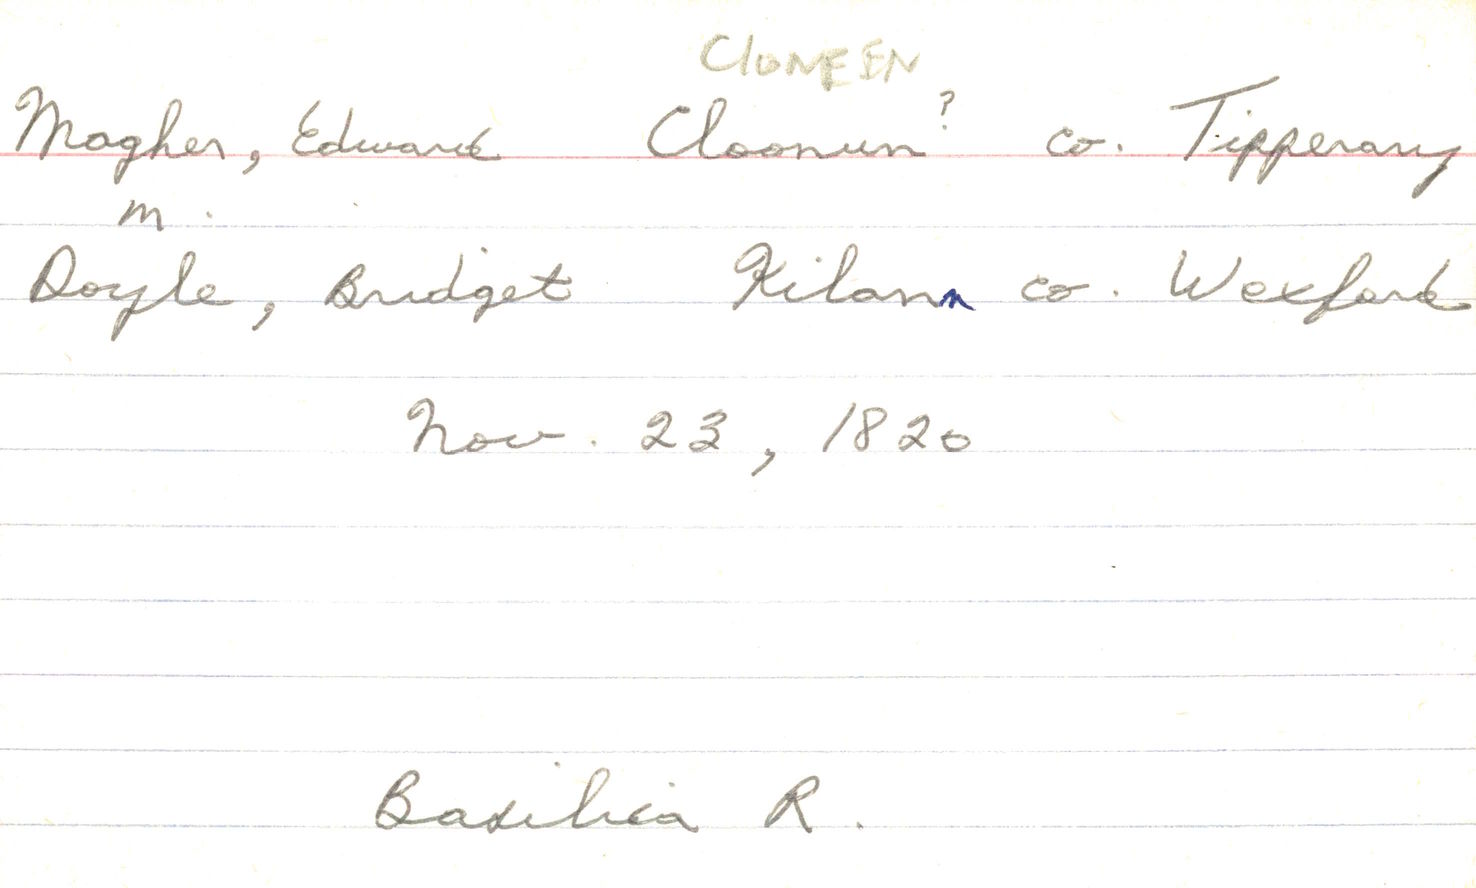 CLONEEN
Magher, Edward Cloonun? co. Tipperary
m.
Doyle, Bridget Kilann co. Wexford
Nov. 23, 1820
Basilica R.